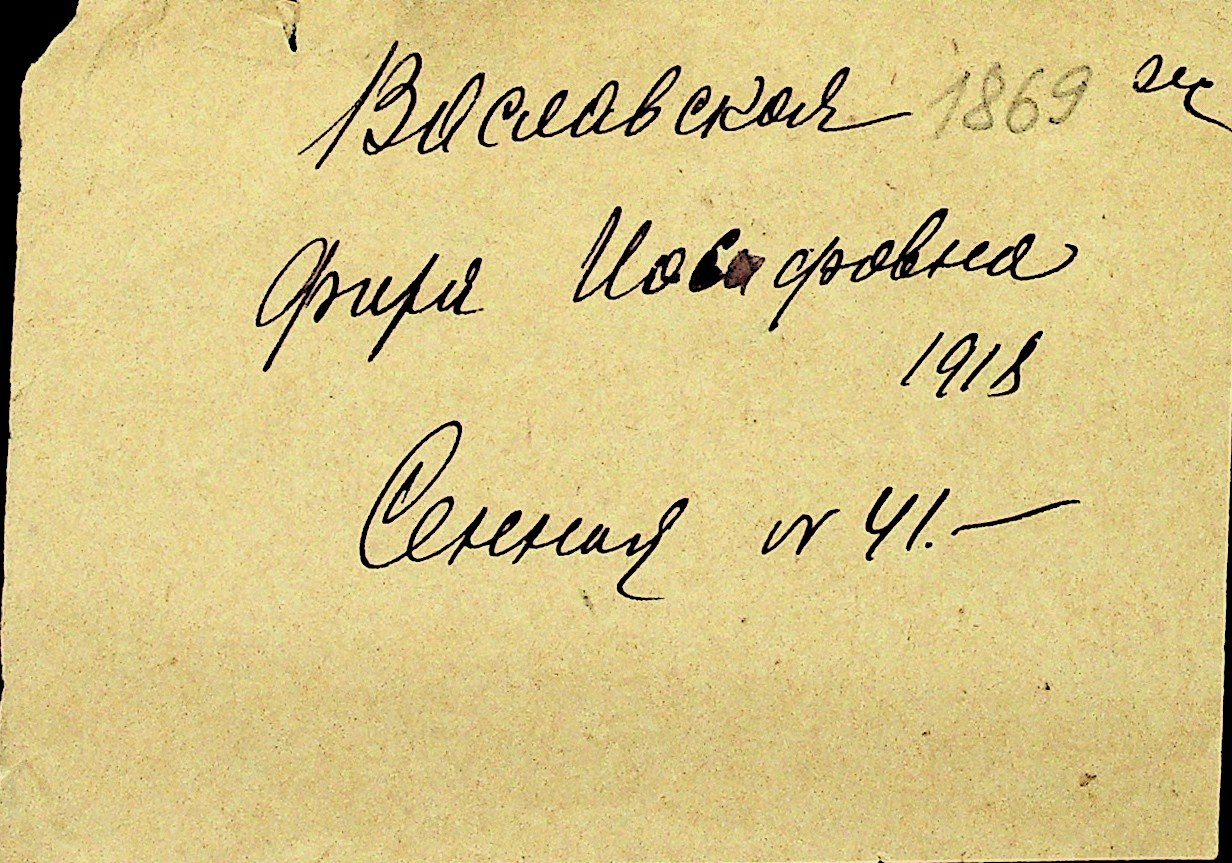 Ваславская 1869 ж
Фира Иосифовна
1918
Сенная № 41.—